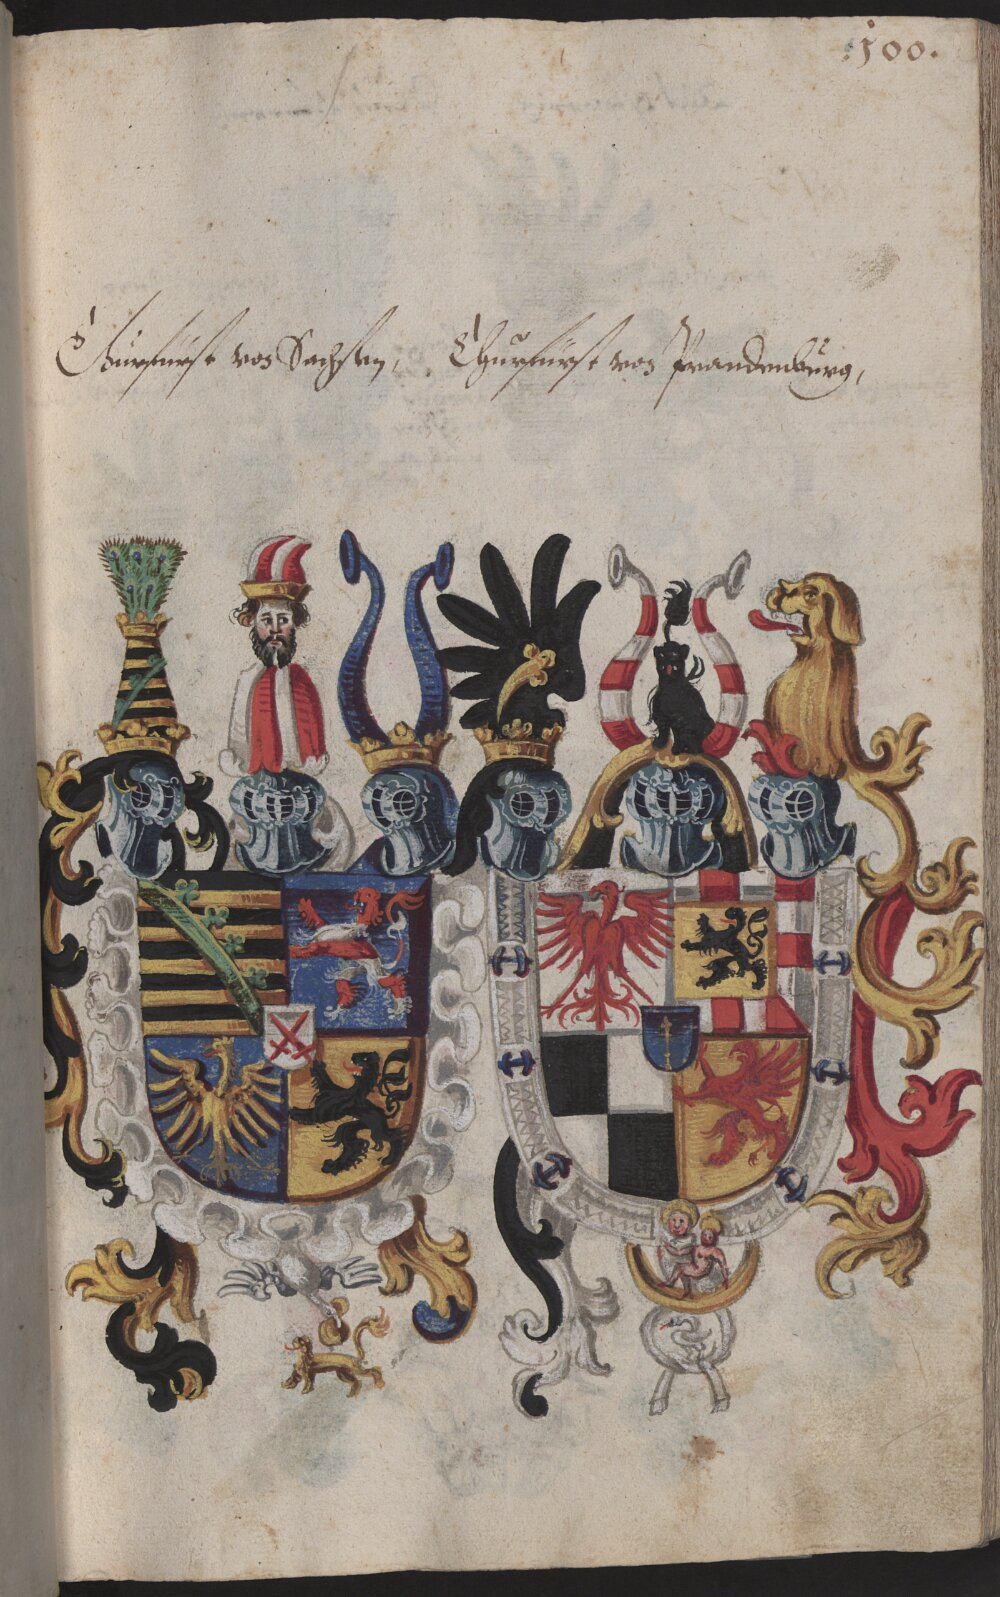 .100.
Chürfürst von Sachsen,
Churfürst von Prandenburg,